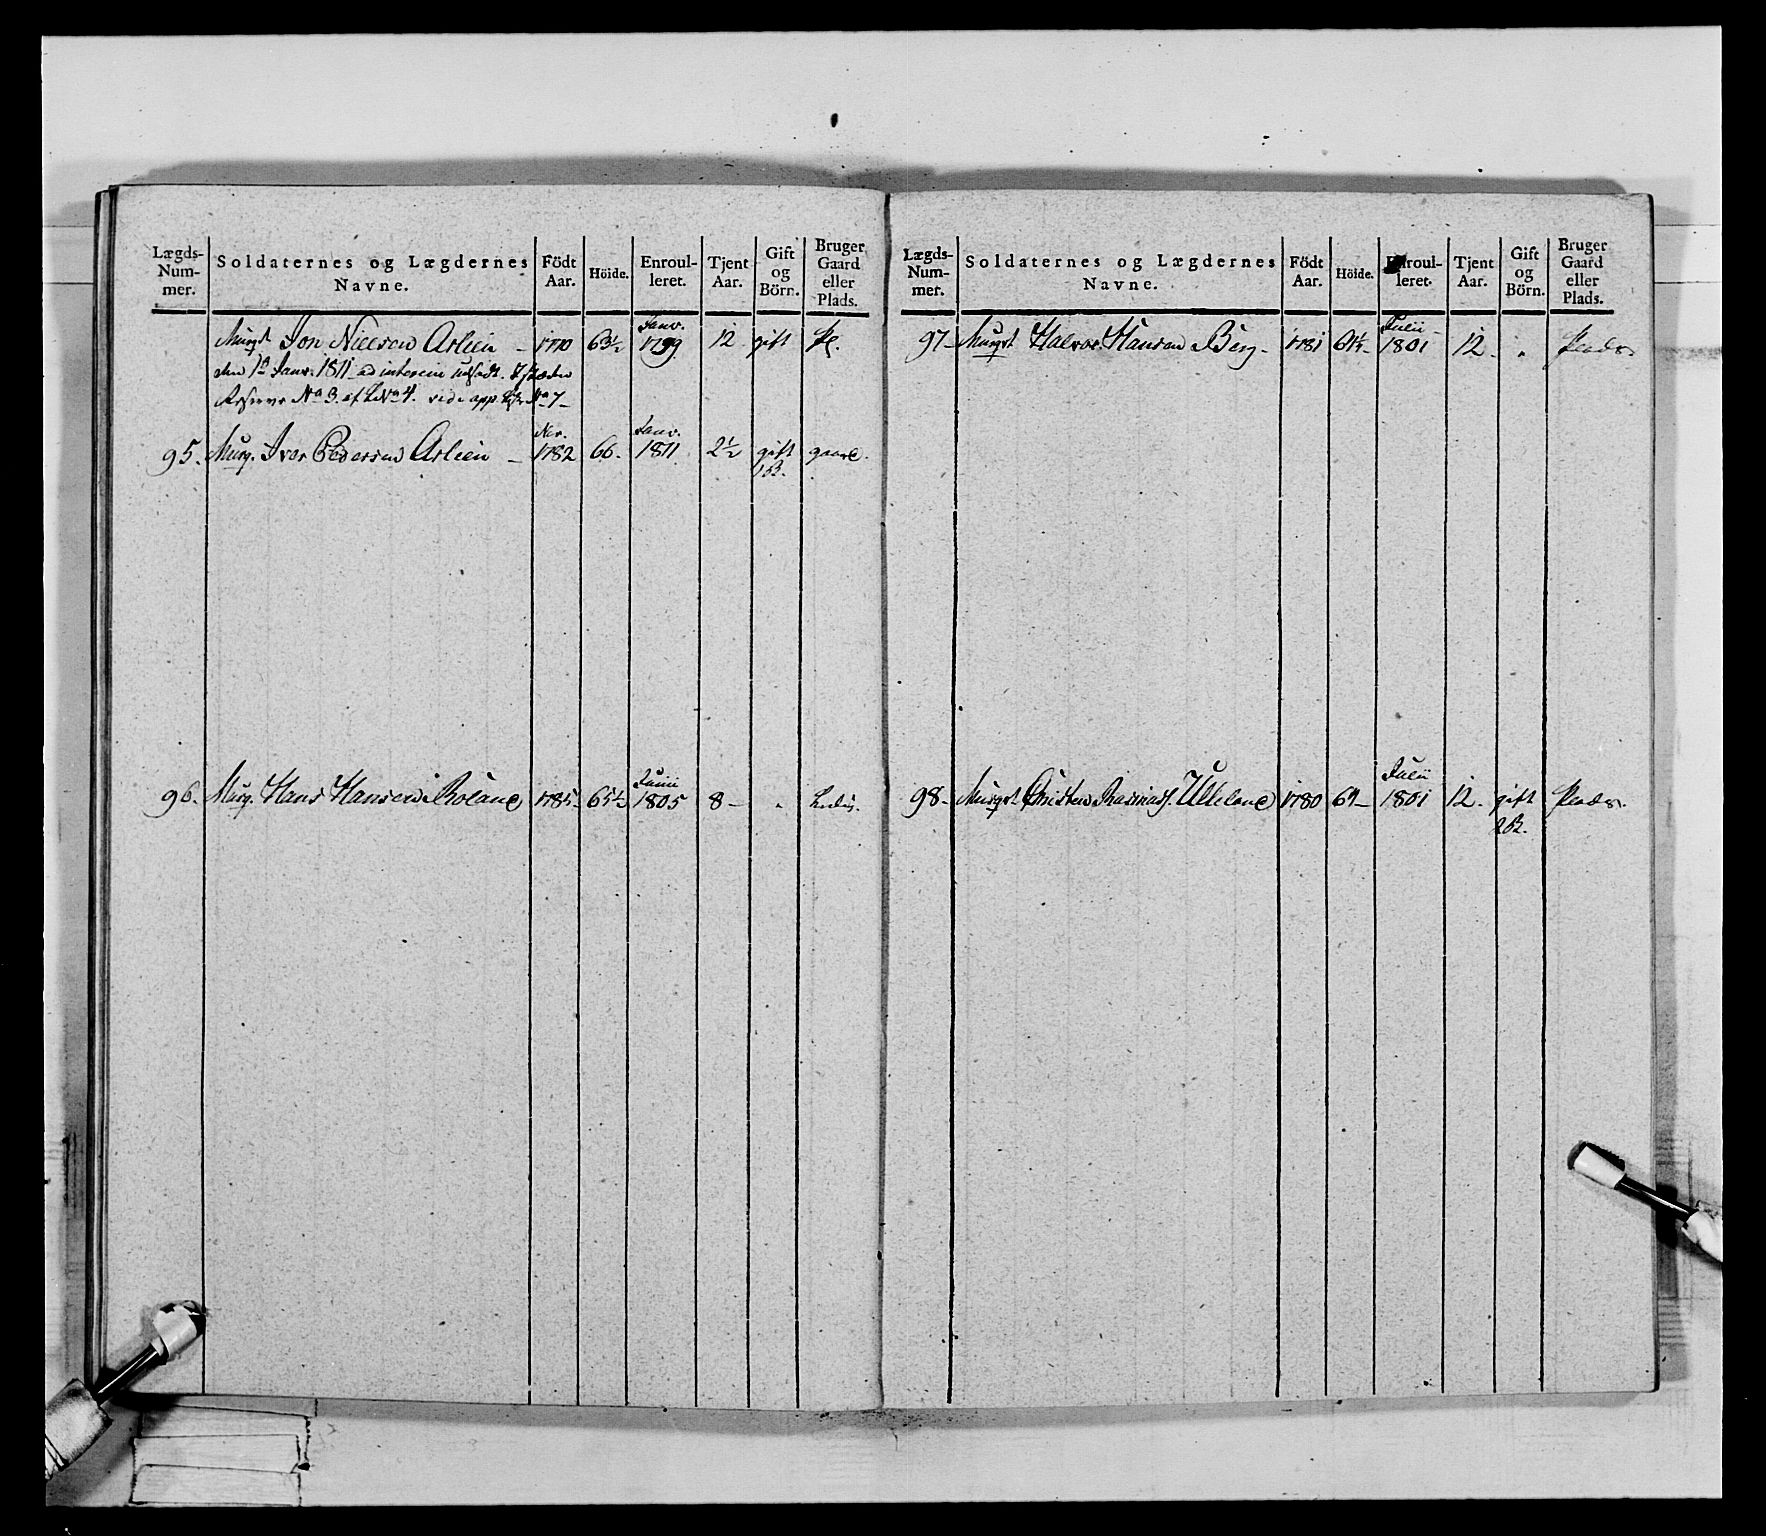 Lægds-Num-mer. Soldaternes og Lægdernes Navne. Födt Aar. Höide. Enroul-leret. Tjent Aar. Gift og Börn. Bruger Gaard eller Plads.
Musqt Jon Nielsen Aslien – 1770 63½ Janv. 1799 12 gift Pl.
den 1ste Janv. 1811 ad interim udsadt.
Reserve No 3. af L No 4. vide app. No 7 –
95. Musq. Iver Pedersen Aslien – Nov. 1782 66. Janv. 1811 2½ gift gaard.
1B.
96. Musq. Hans Hansen Roland 1785 65½ Junii 1805 8 – " Ledig.
Lægds-Num-mer. Soldaternes og Lægdernes Navne. Födt Aar. Höide. Enroul-leret. Tjent Aar. Gift og Börn. Bruger Gaard eller Plads.
97 – Musqt Halvor Hansen Berg – 1781 Julii 1801 12. " Plads.
98 – Musqt Christen Rasmuss. Ulleland 1780 Julii 1801 12. gift Plads.
2B.